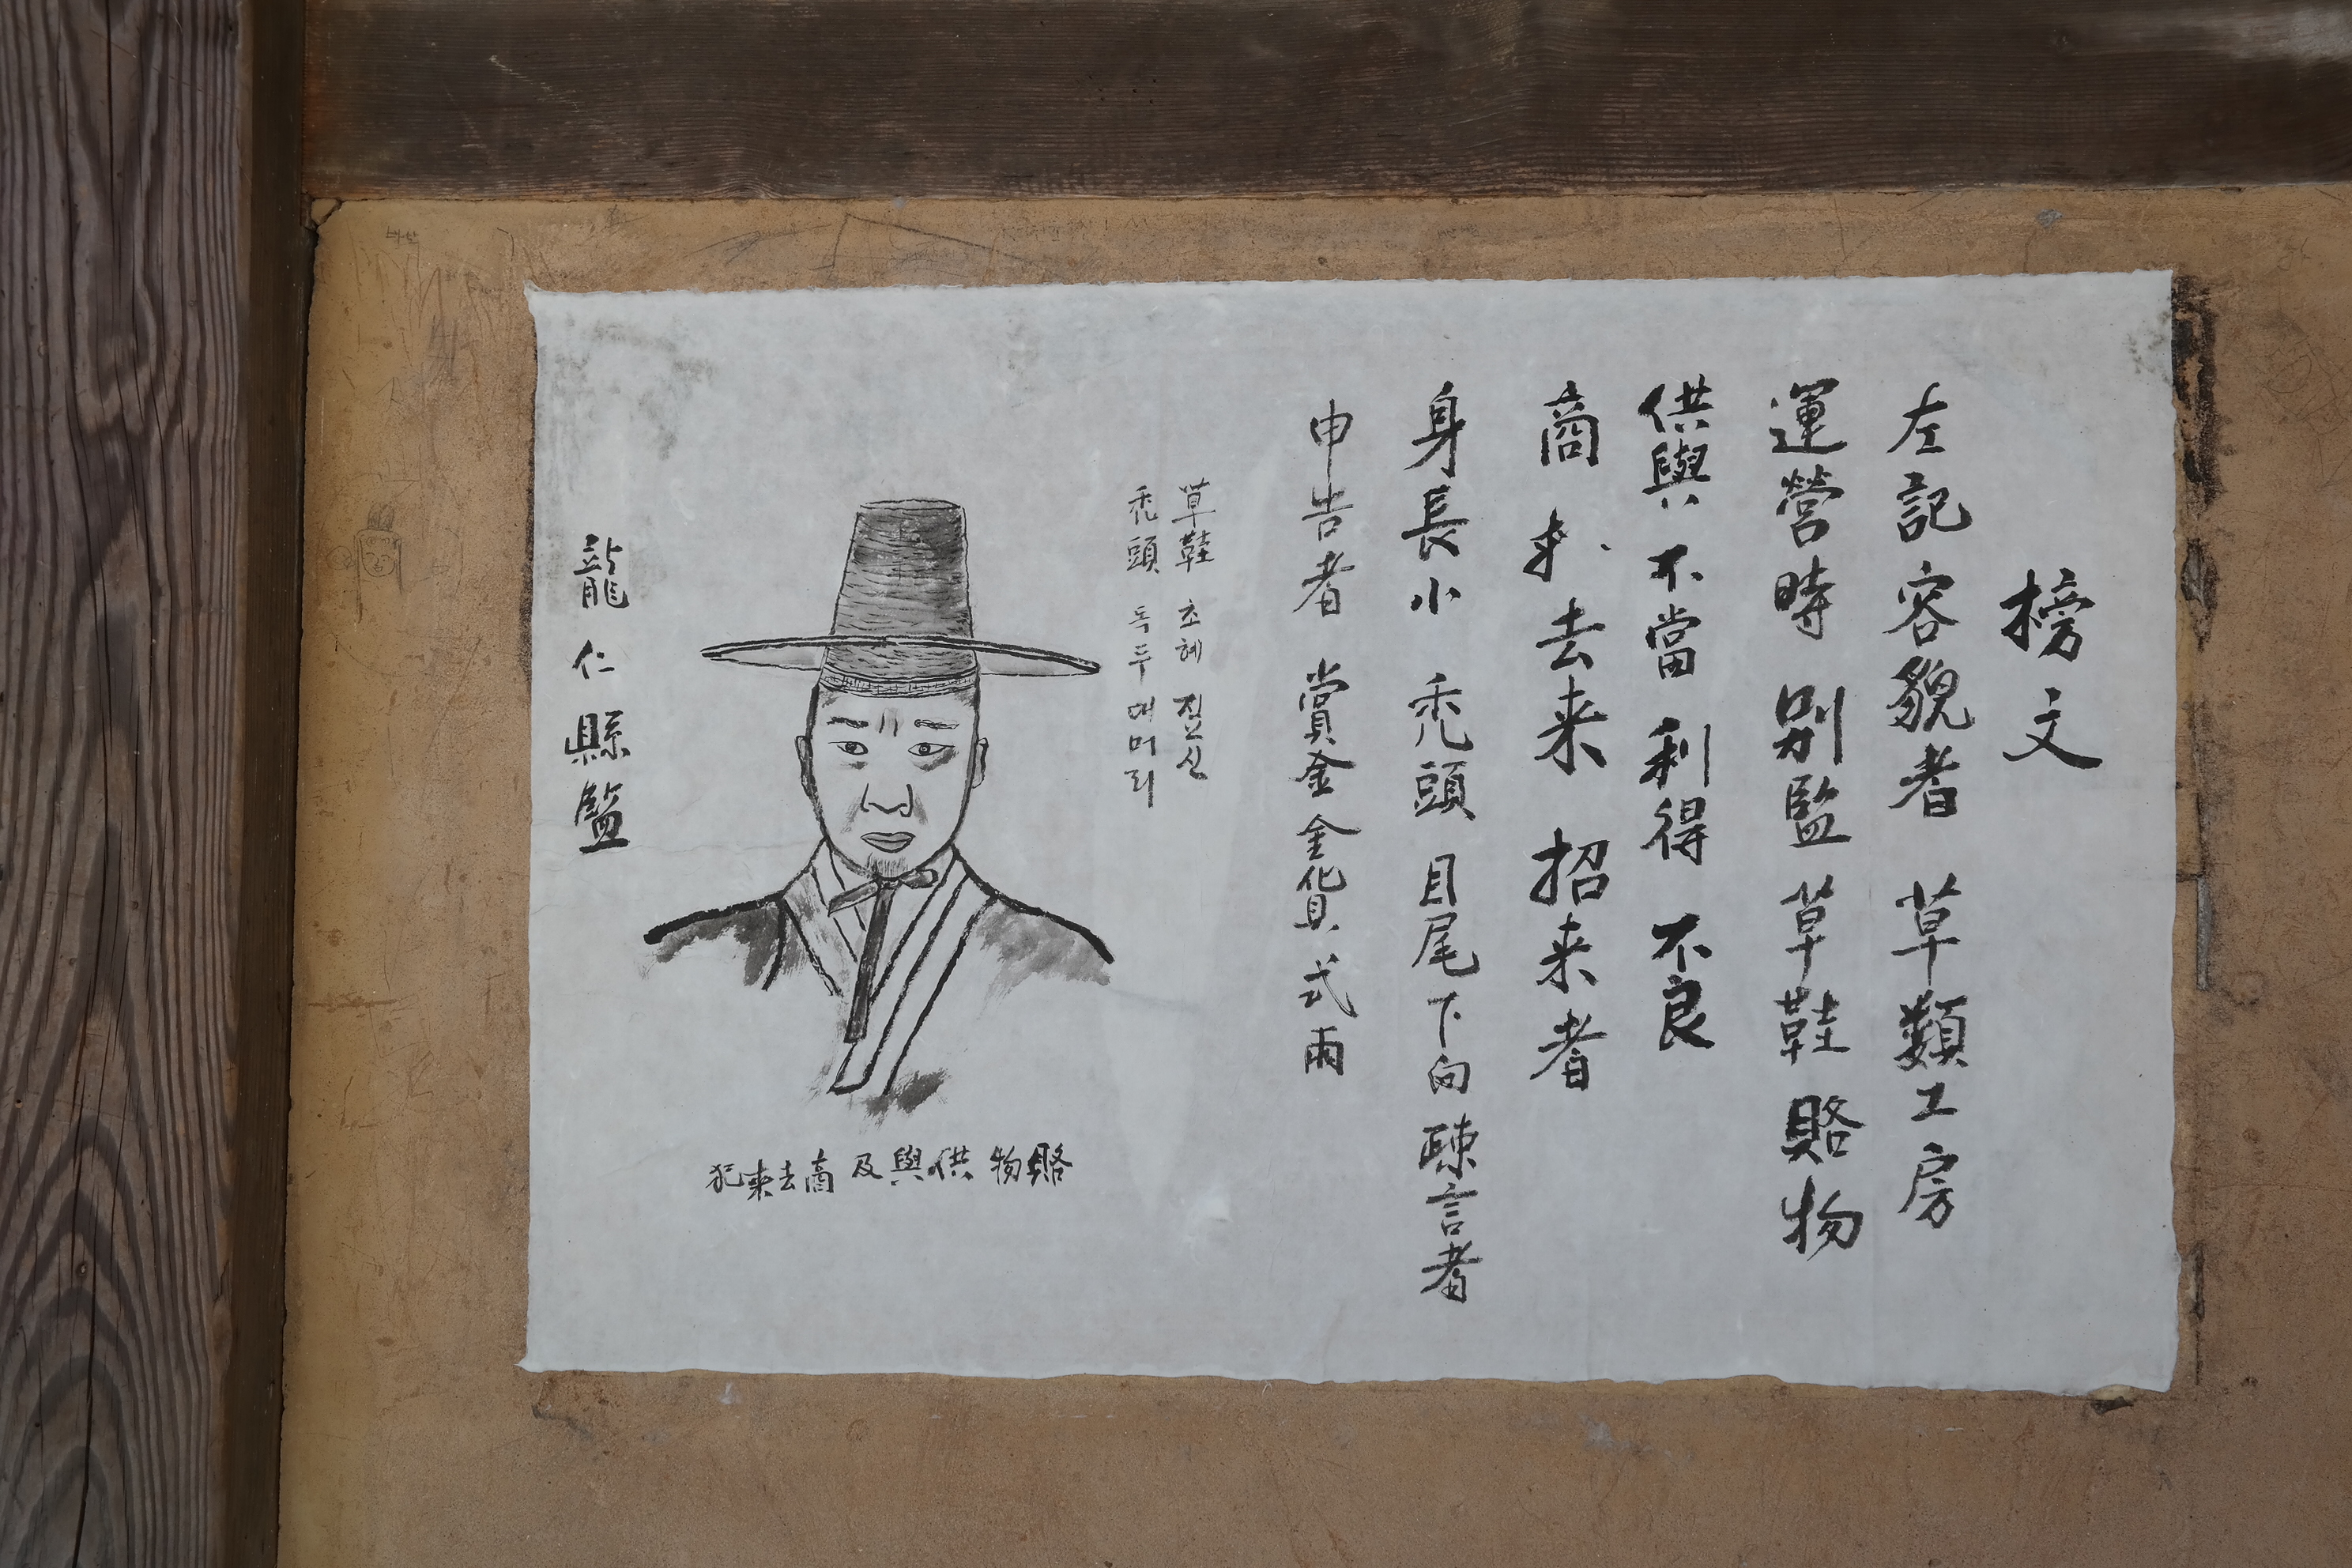 榜文
左記 容貌者 草類工房
運營時 別監 草鞋 賂物
供與 不當 利得 不良
商 去來 招来者
身長小 禿頭 目尾下向 諫言者
申告者 賞金 金貨 弍兩
草鞋 초혜 짚신
禿頭 독두 대머리
賂物 供與及 商去來犯
龍仁縣監